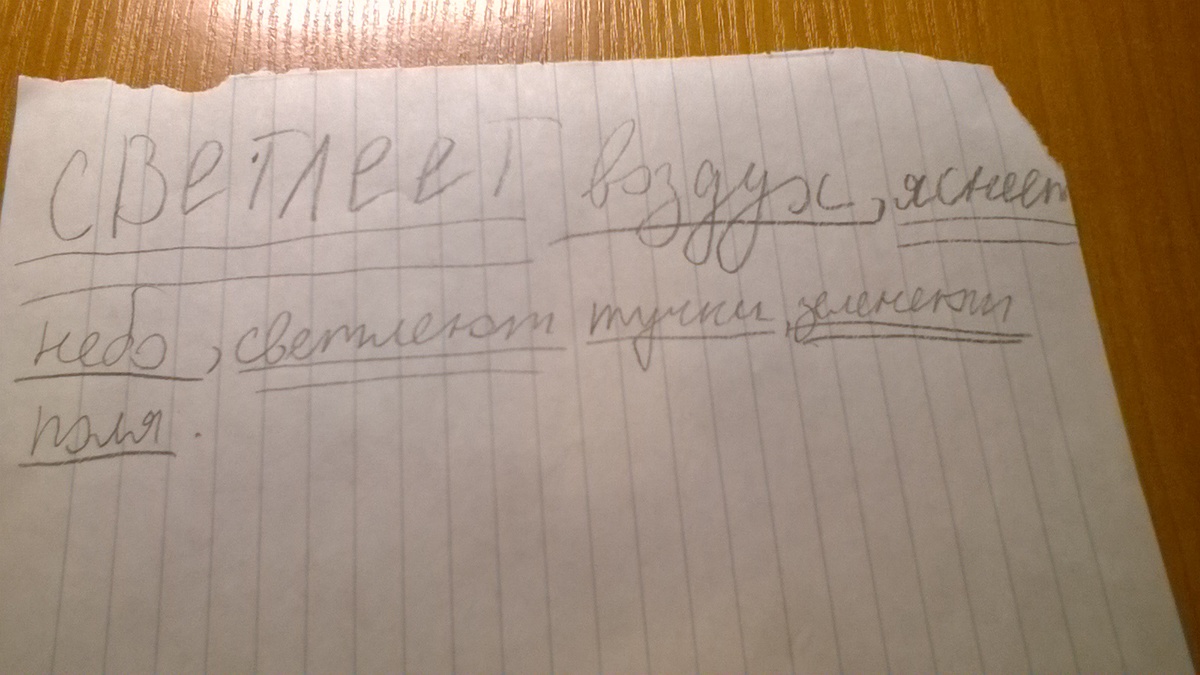 СВеТЛееТ воздух, яснеет
небо, светлеют тучки, зеленеют
поля.